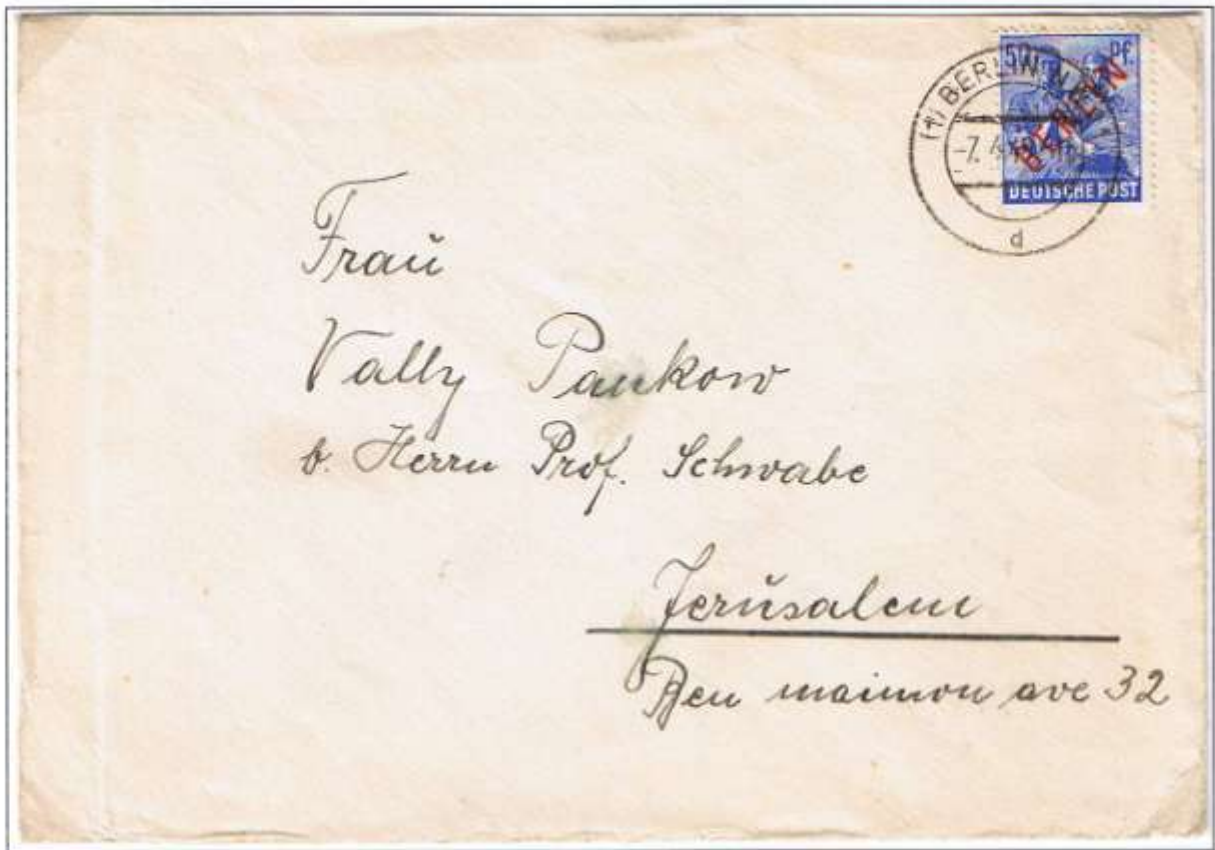 50 Pf.
(1) BERLIN N
BERLIN
-7. 4.
DEUTSCHE POST
d
Fraŭ
Vally Pankow
b. Herrn Prof. Schwabe
Jerŭsalem
Ben maimon ave 32